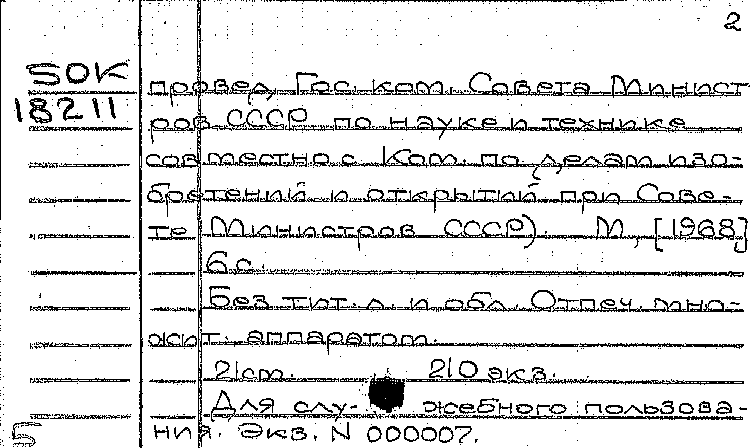 2
50К
18211
провед. Гос. ком. Совета Минист
ров СССР по науке и технике
совместно с Ком. по делам изо-
бретений и открытий при Сове-
те Министров СССР). М., [1968]
6 с.
Без тит. л. и обл. Отпеч. мно-
жит. аппаратом.
21 cm. 210 экз.
Для слу- жебного пользова-
ния. Экз. N 000007.
5